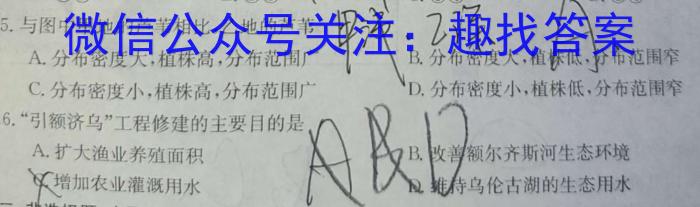 5.与图中
微信公众号关注：趣找答案
A.分布密度大,植株高,分布范围广
B.分布密度大,植株低,分布范围窄
C.分布密度小,植株高,分布范围广
D.分布密度小,植株低,分布范围窄
6.“引额济乌”工程修建的主要目的是
ABD
A.扩大渔业养殖面积
B.改善额尔齐斯河生态环境
增加农业灌溉用水
D.维持乌伦古湖的生态用水